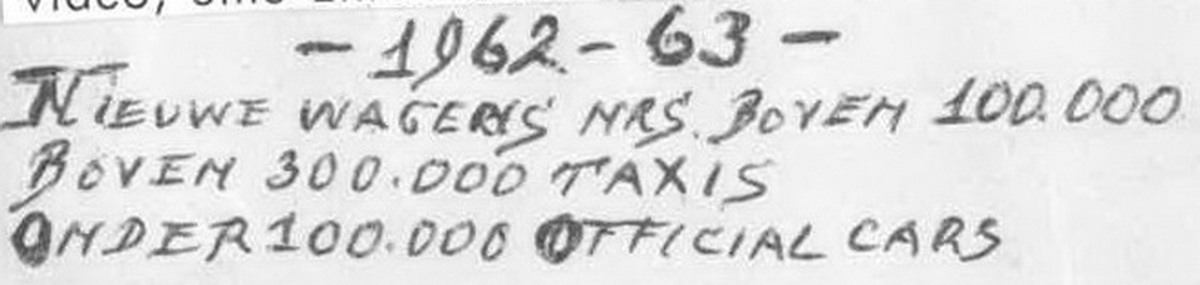 - 1962 - 63 -
NIEUWE WAGENS NRS. BOVEN 100.000
BOVEN 300.000 TAXIS
ONDER 100.000 OFFICIAL CARS